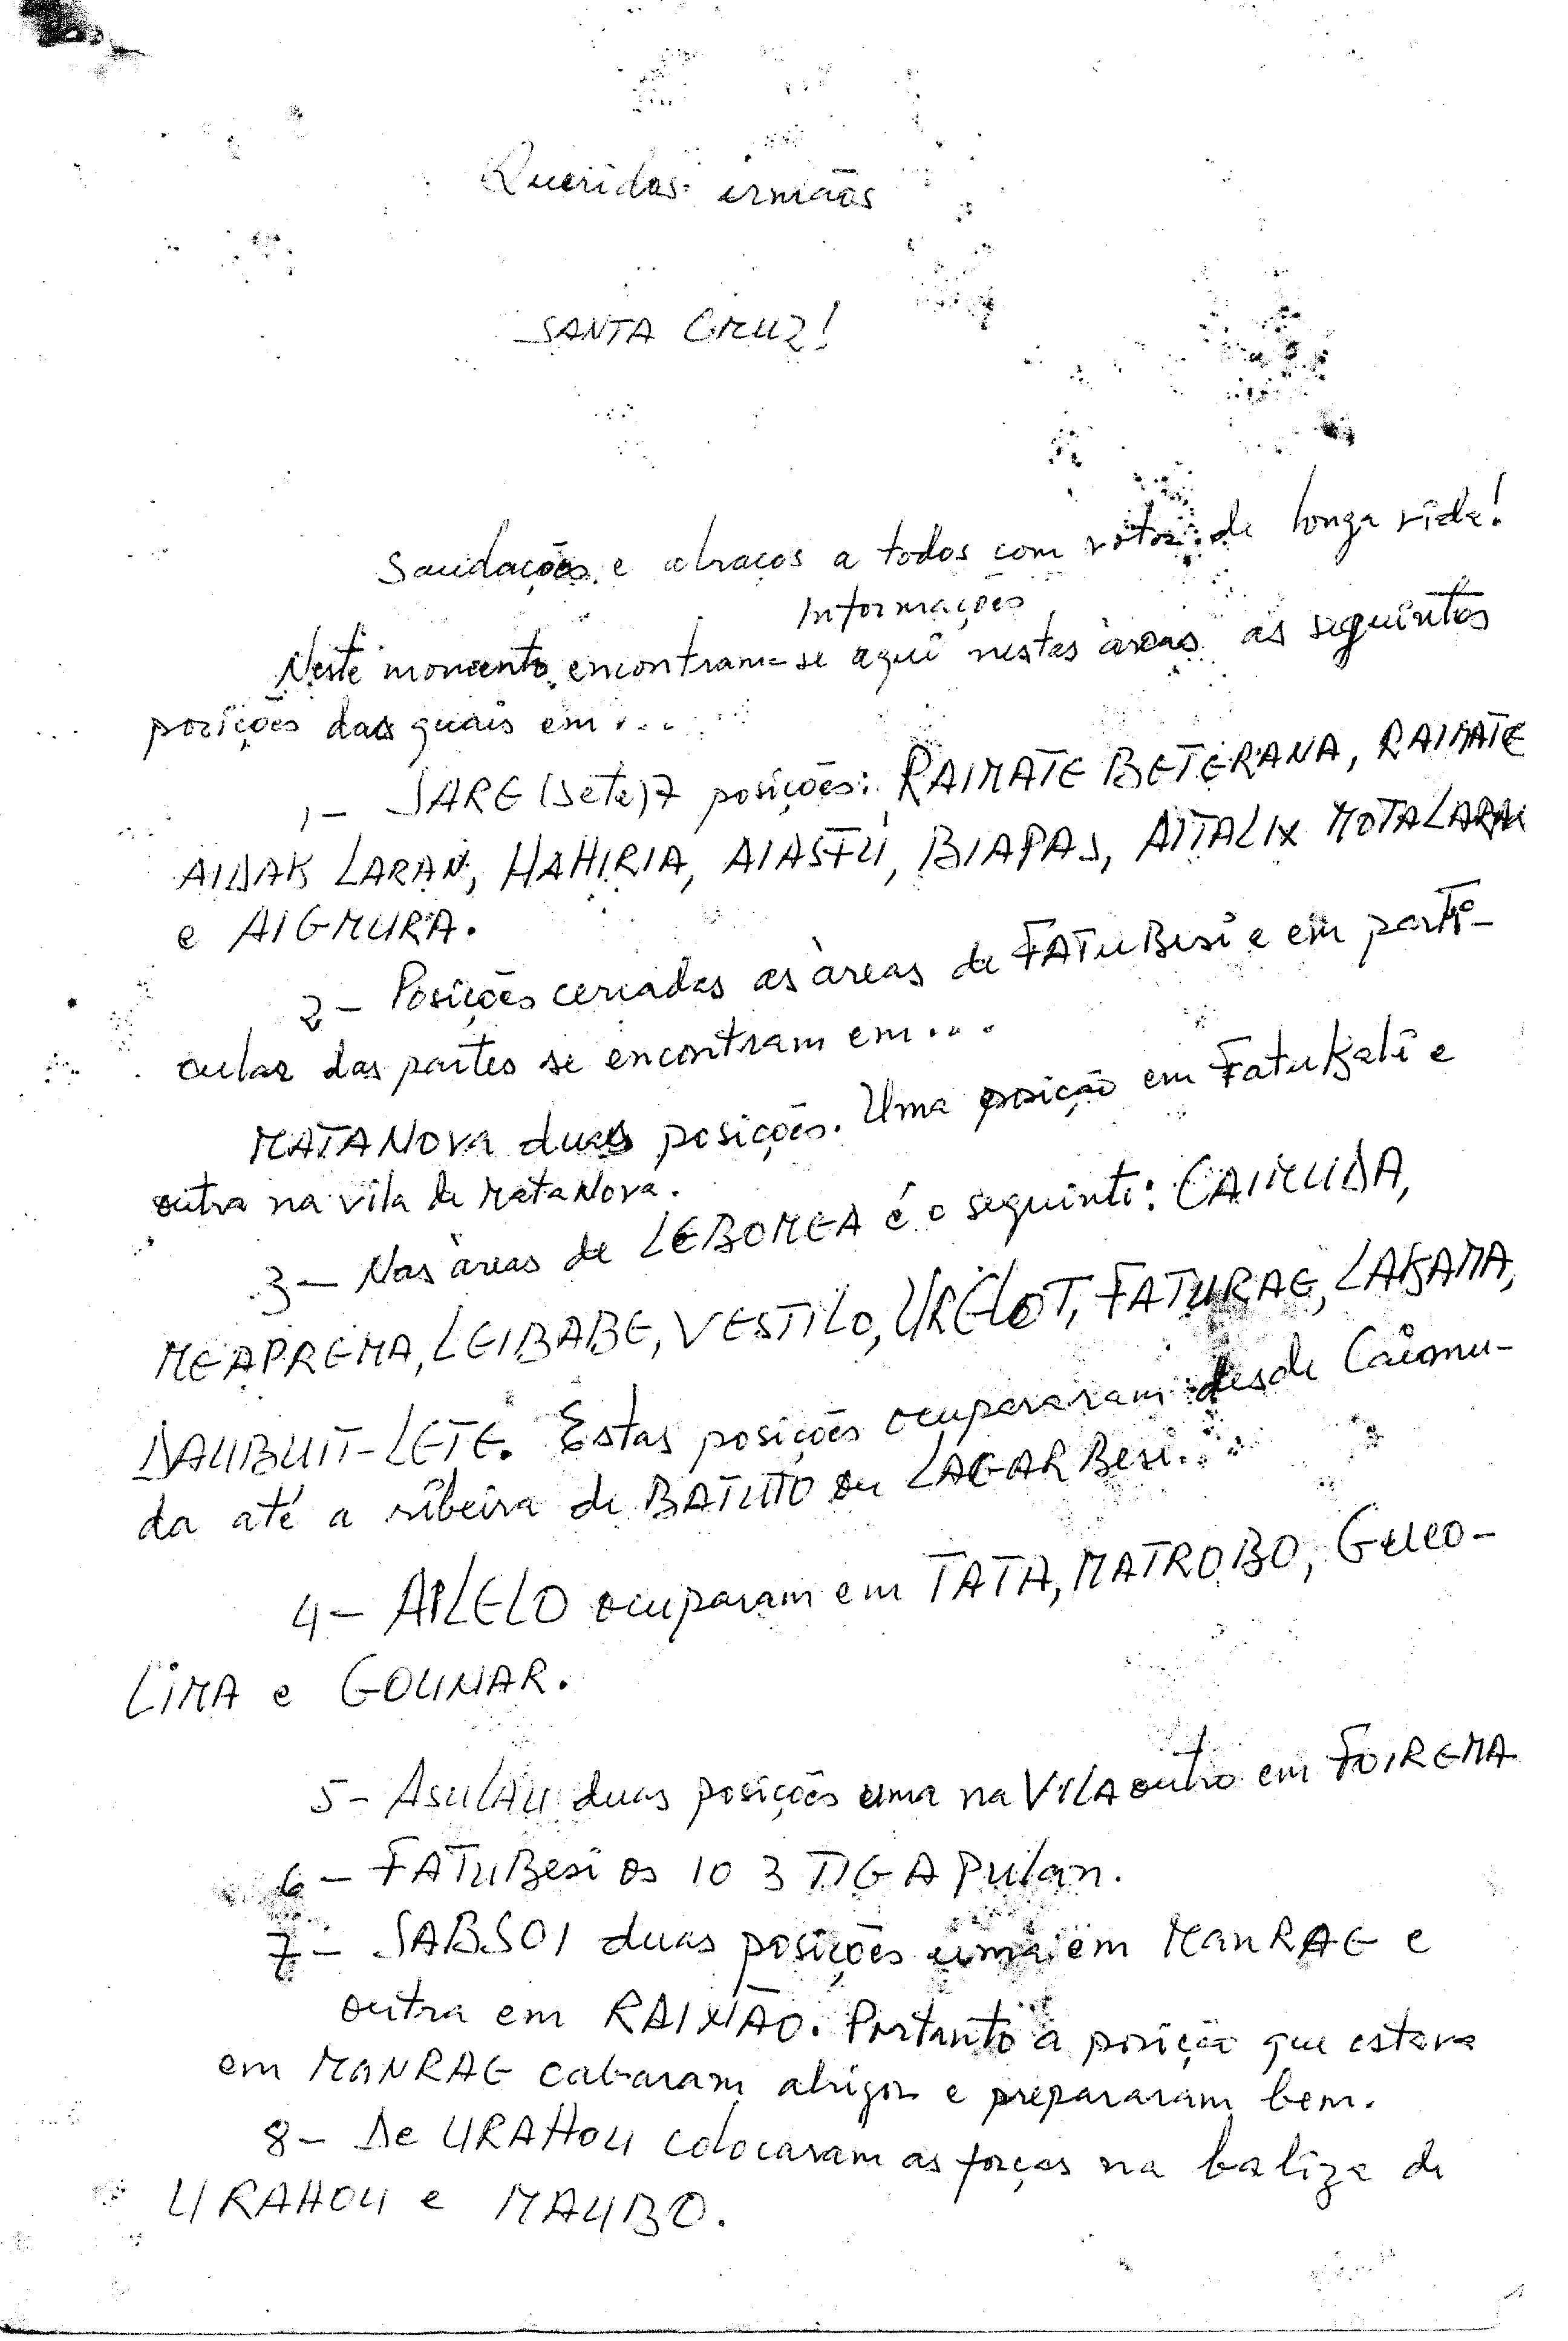 Queridos irmãos
SANTA CRUZ!
Saudações e abraços a todos com votos de longa vida!
Informações
Neste momento encontram-se aqui nestas àreas as seguintes
posições das quais em...
1- SARE (sete) 7 posições: RAIMATE BETERANA, RAIMATE
AIDAK LARAN, HAHIRIA, AIASFU, BIAPAS, AITALIX MOTALARAN
e AIGMURA.
2- Posições cercadas as àreas de FATUBesi e em parti-
cular das partes se encontram em...
MATANOVA duas posições. Uma posição em FatuKali e
outra na vila de MataNova.
3- Nas àreas de LEBOMEA é o seguinte: CAIMUDA,
MEAPREMA, LEIBABE, VESTILO, URELOT, FATURAE, LAKAMA,
DAUBUIT-LETE. Estas posições ocupararam desde Caimu-
da até a ribeira de BATUTO ou LAGAR Besi.
4- AILELO ocuparam em TATA, MATROBO, Guleo-
LIMA e GOUNAR.
5- ASULAU duas posições uma na VILA outro em FOIREMA
6- FATUBesi os 10 3 TIGA Pulan.
7- SABSOI duas posições uma em ManRAE e
outra em RAIXÃO. Portanto a posição que estava
em MANRAE cabaram abrigos e prepararam bem.
8- De URAHOU colocaram as forças na baliza de
URAHOU e MAUBO.